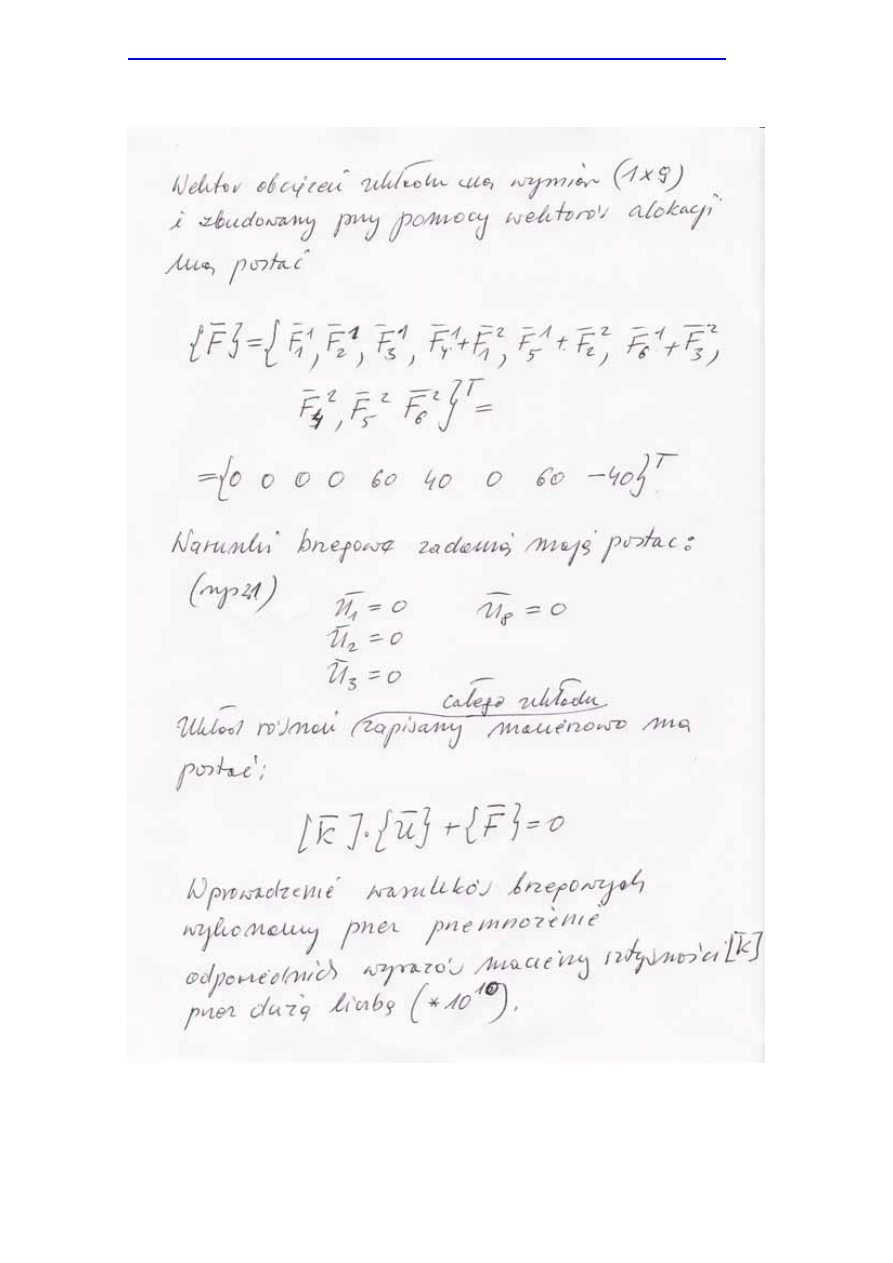 Wektor obciążeń układu ma wymiar (1×9)
i zbudowany przy pomocy wektorów alokacji
ma postać
{F̄}={F̄₁¹, F̄₂¹, F̄₃¹, F̄₄¹+F̄₁², F̄₅¹+F̄₂², F̄₆¹+F̄₃²,
F̄₄², F̄₅² F̄₆²}ᵀ=
={0 0 0 0 60 40 0 60 -40}ᵀ
Warunki brzegowe zadania mają postać:
(rys. 21)
ū₁ = 0 ū₈ = 0
ū₂ = 0
ū₃ = 0
całego układu
Układ równań zapisany macierzowo ma
postać:
[K̄]·{ū}+{F̄}=0
Wprowadzenie warunków brzegowych
wykonamy przez przemnożenie
odpowiednich wyrazów macierzy sztywności [K̄]
przez dużą liczbę (*10¹⁰).